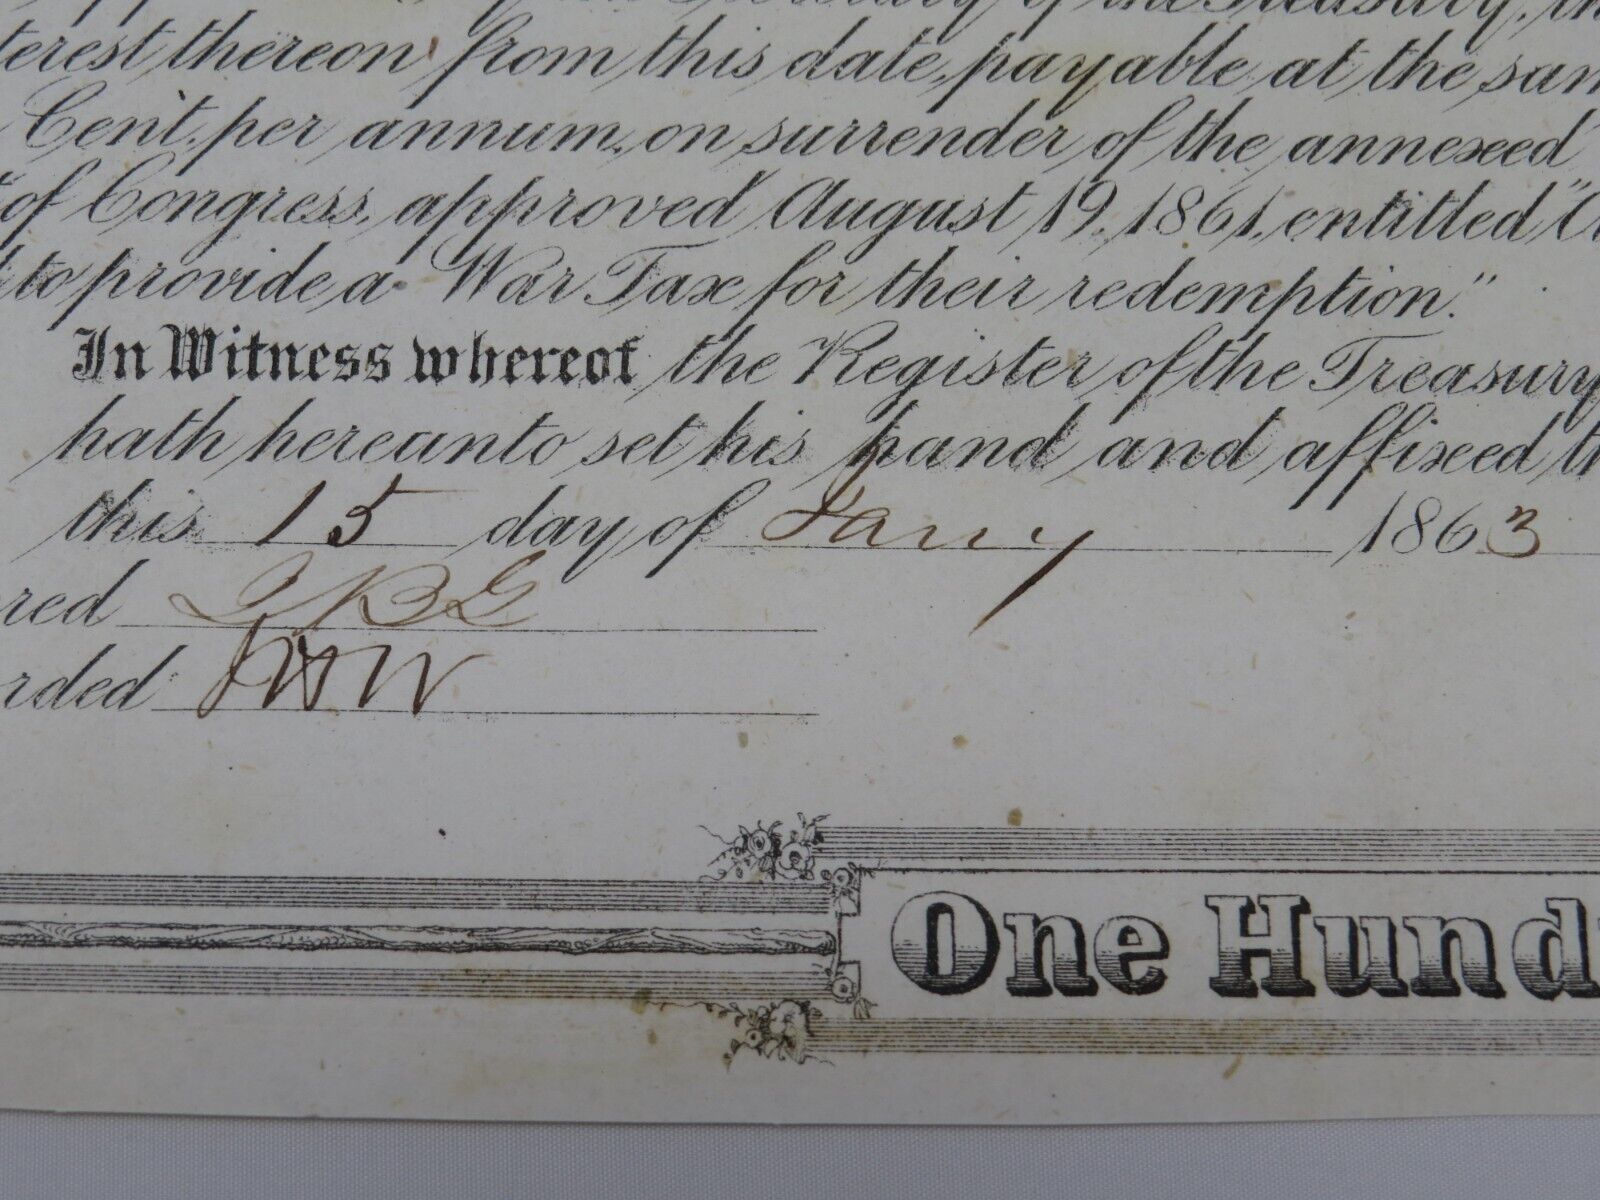 Secretary of the Treasury, th
terest thereon from this date, payable at the sam
Cent. per annum, on surrender of the annexed
of Congress, approved August 19, 1861, entitled "A
to provide a War Tax for their redemption."
In Witness whereof the Register of the Treasury
hath hereunto set his hand and affixed th
this 15 day of Jany 1863
ered
rded
One Hund